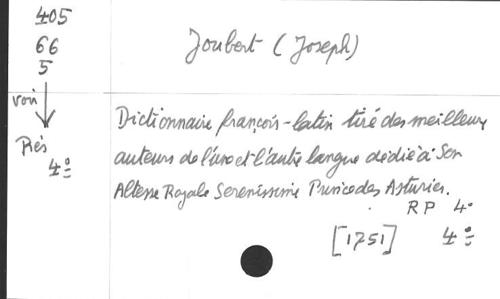 405
66
5
voir
Rés
4º
Joubert (Joseph)
Dictionnaire françois-latin tiré des meilleurs
auteurs de l'une et l'autre langue dédié à Son
Altesse Royale Serenissime Prince des Asturies.
RP 4º
[1751] 4º